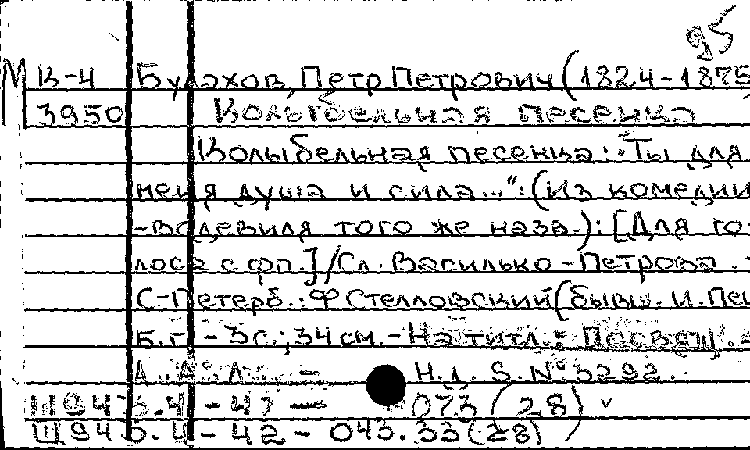 95
М В-4 Булахов, Петр Петрович (1824-1875
3950 Колыбельная песенка
Колыбельная песенка: "Ты для
меня душа и сила...": (Из комедии
-водевиля того же назв.): [Для го-
лоса с фп.] / Сл. Василько-Петрова. -
С-Петерб.: Ф Стелловский (бывш. И. Пец
Б.г. - 3 с.; 34 см. - На титл.: Посвящ.
Н.д. S. N° 3292.
Щ943.4-42- 043.33(28)